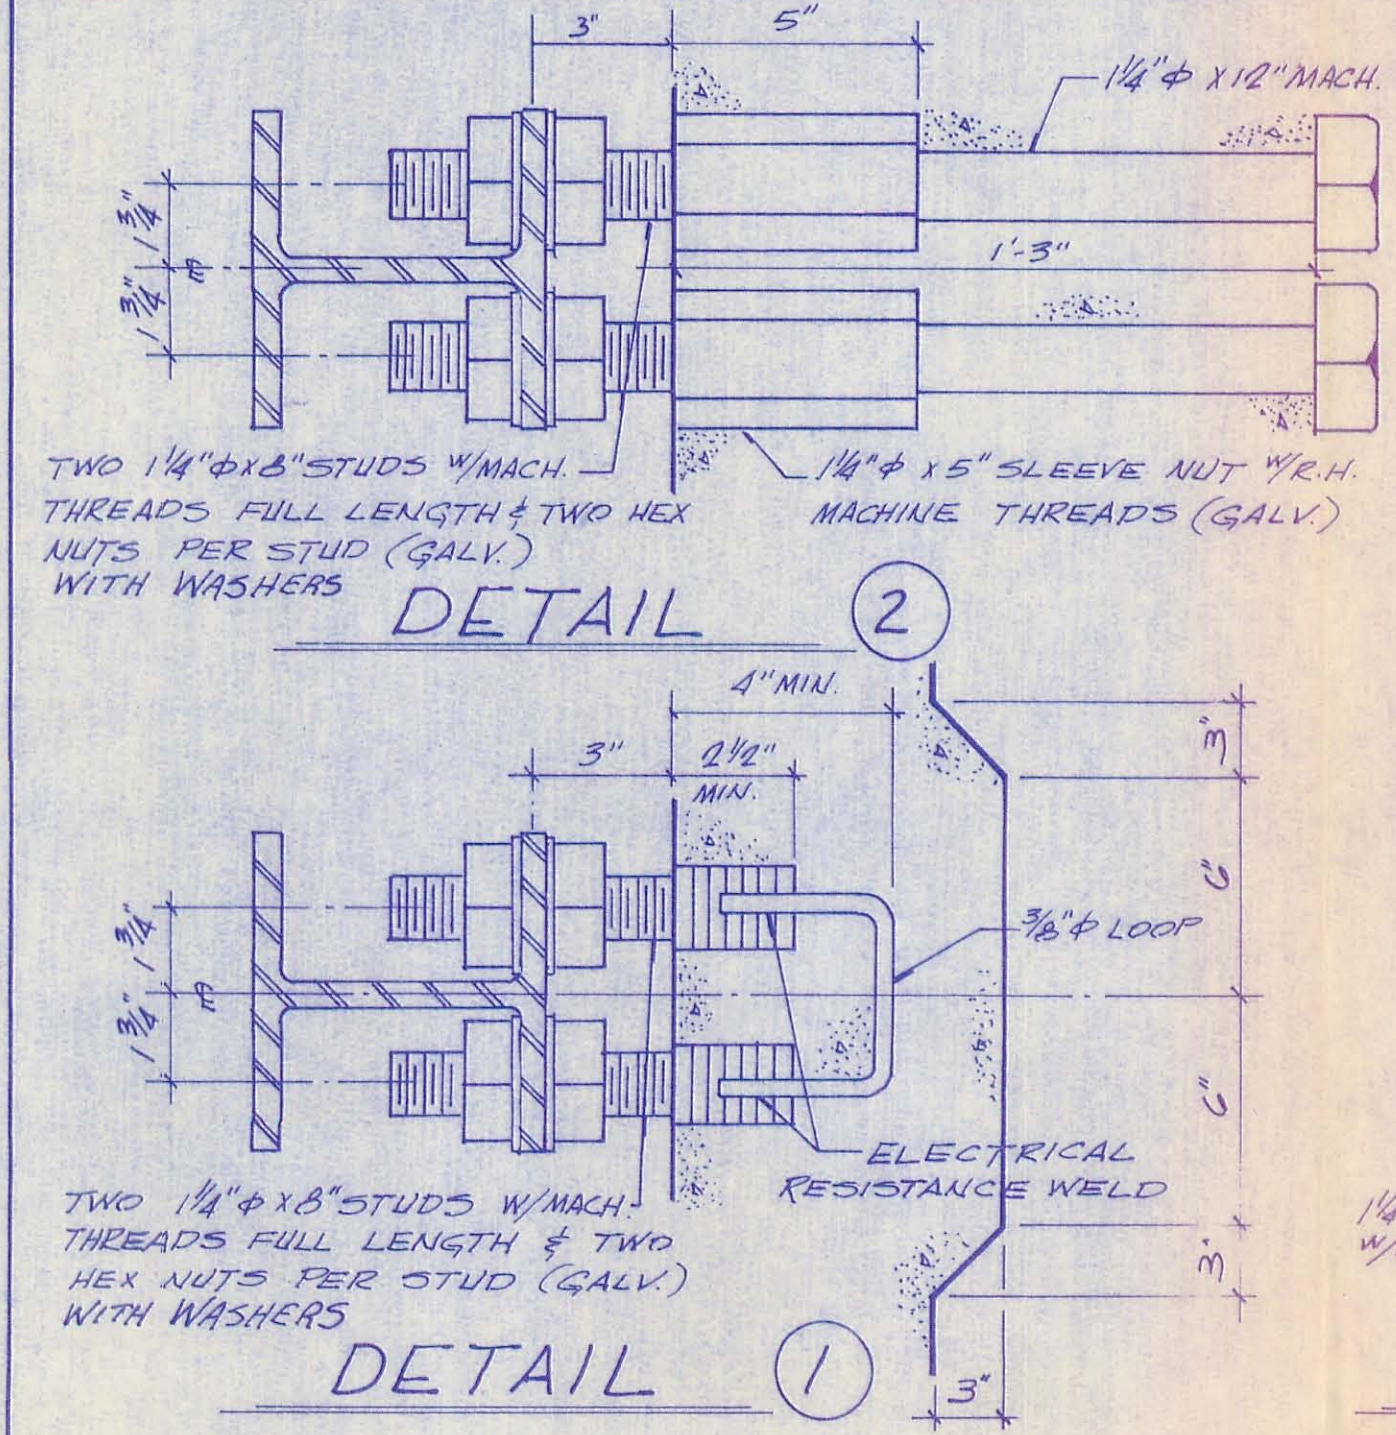 3"
5"
1 1/4" ϕ X 12" MACH.
1 3/4"
1 3/4"
1'-3"
TWO 1 1/4" ϕ X 8" STUDS W/MACH.
THREADS FULL LENGTH & TWO HEX
NUTS PER STUD (GALV.)
WITH WASHERS
1 1/4" ϕ X 5" SLEEVE NUT W/R.H.
MACHINE THREADS (GALV.)
DETAIL 2
4" MIN.
3"
2 1/2"
MIN.
3"
6"
3/8" ϕ LOOP
1 3/4"
1 3/4"
6"
ELECTRICAL
RESISTANCE WELD
3"
TWO 1 1/4" ϕ X 8" STUDS W/MACH.
THREADS FULL LENGTH & TWO
HEX NUTS PER STUD (GALV.)
WITH WASHERS
1 1/4
W/
DETAIL 1
3"